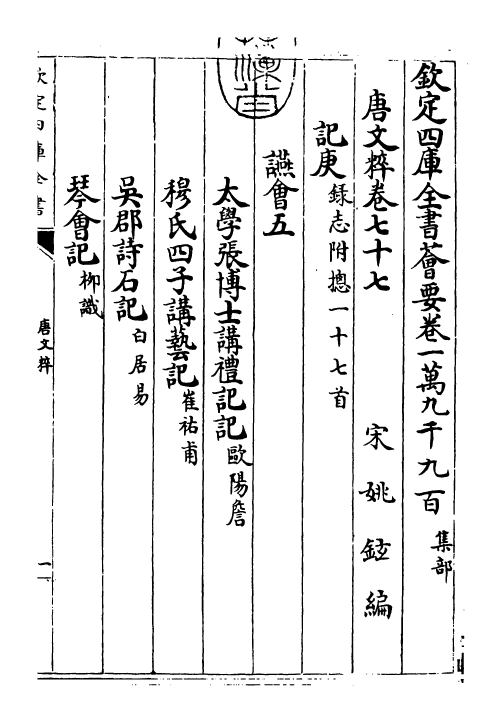 欽定四庫全書薈要卷一萬九千九百 集部
唐文粹卷七十七
宋 姚鉉編
記庚 錄志附摠一十七首
讌會五
太學張博士講禮記記 歐陽詹
穆氏四子講藝記 崔祐甫
吳郡詩石記 白居易
琴會記 柳識
欽定四庫全書
唐文粹
一